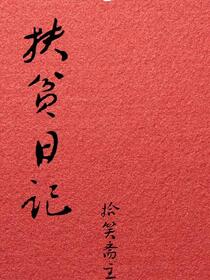 扶贫日记
拾笑斋主